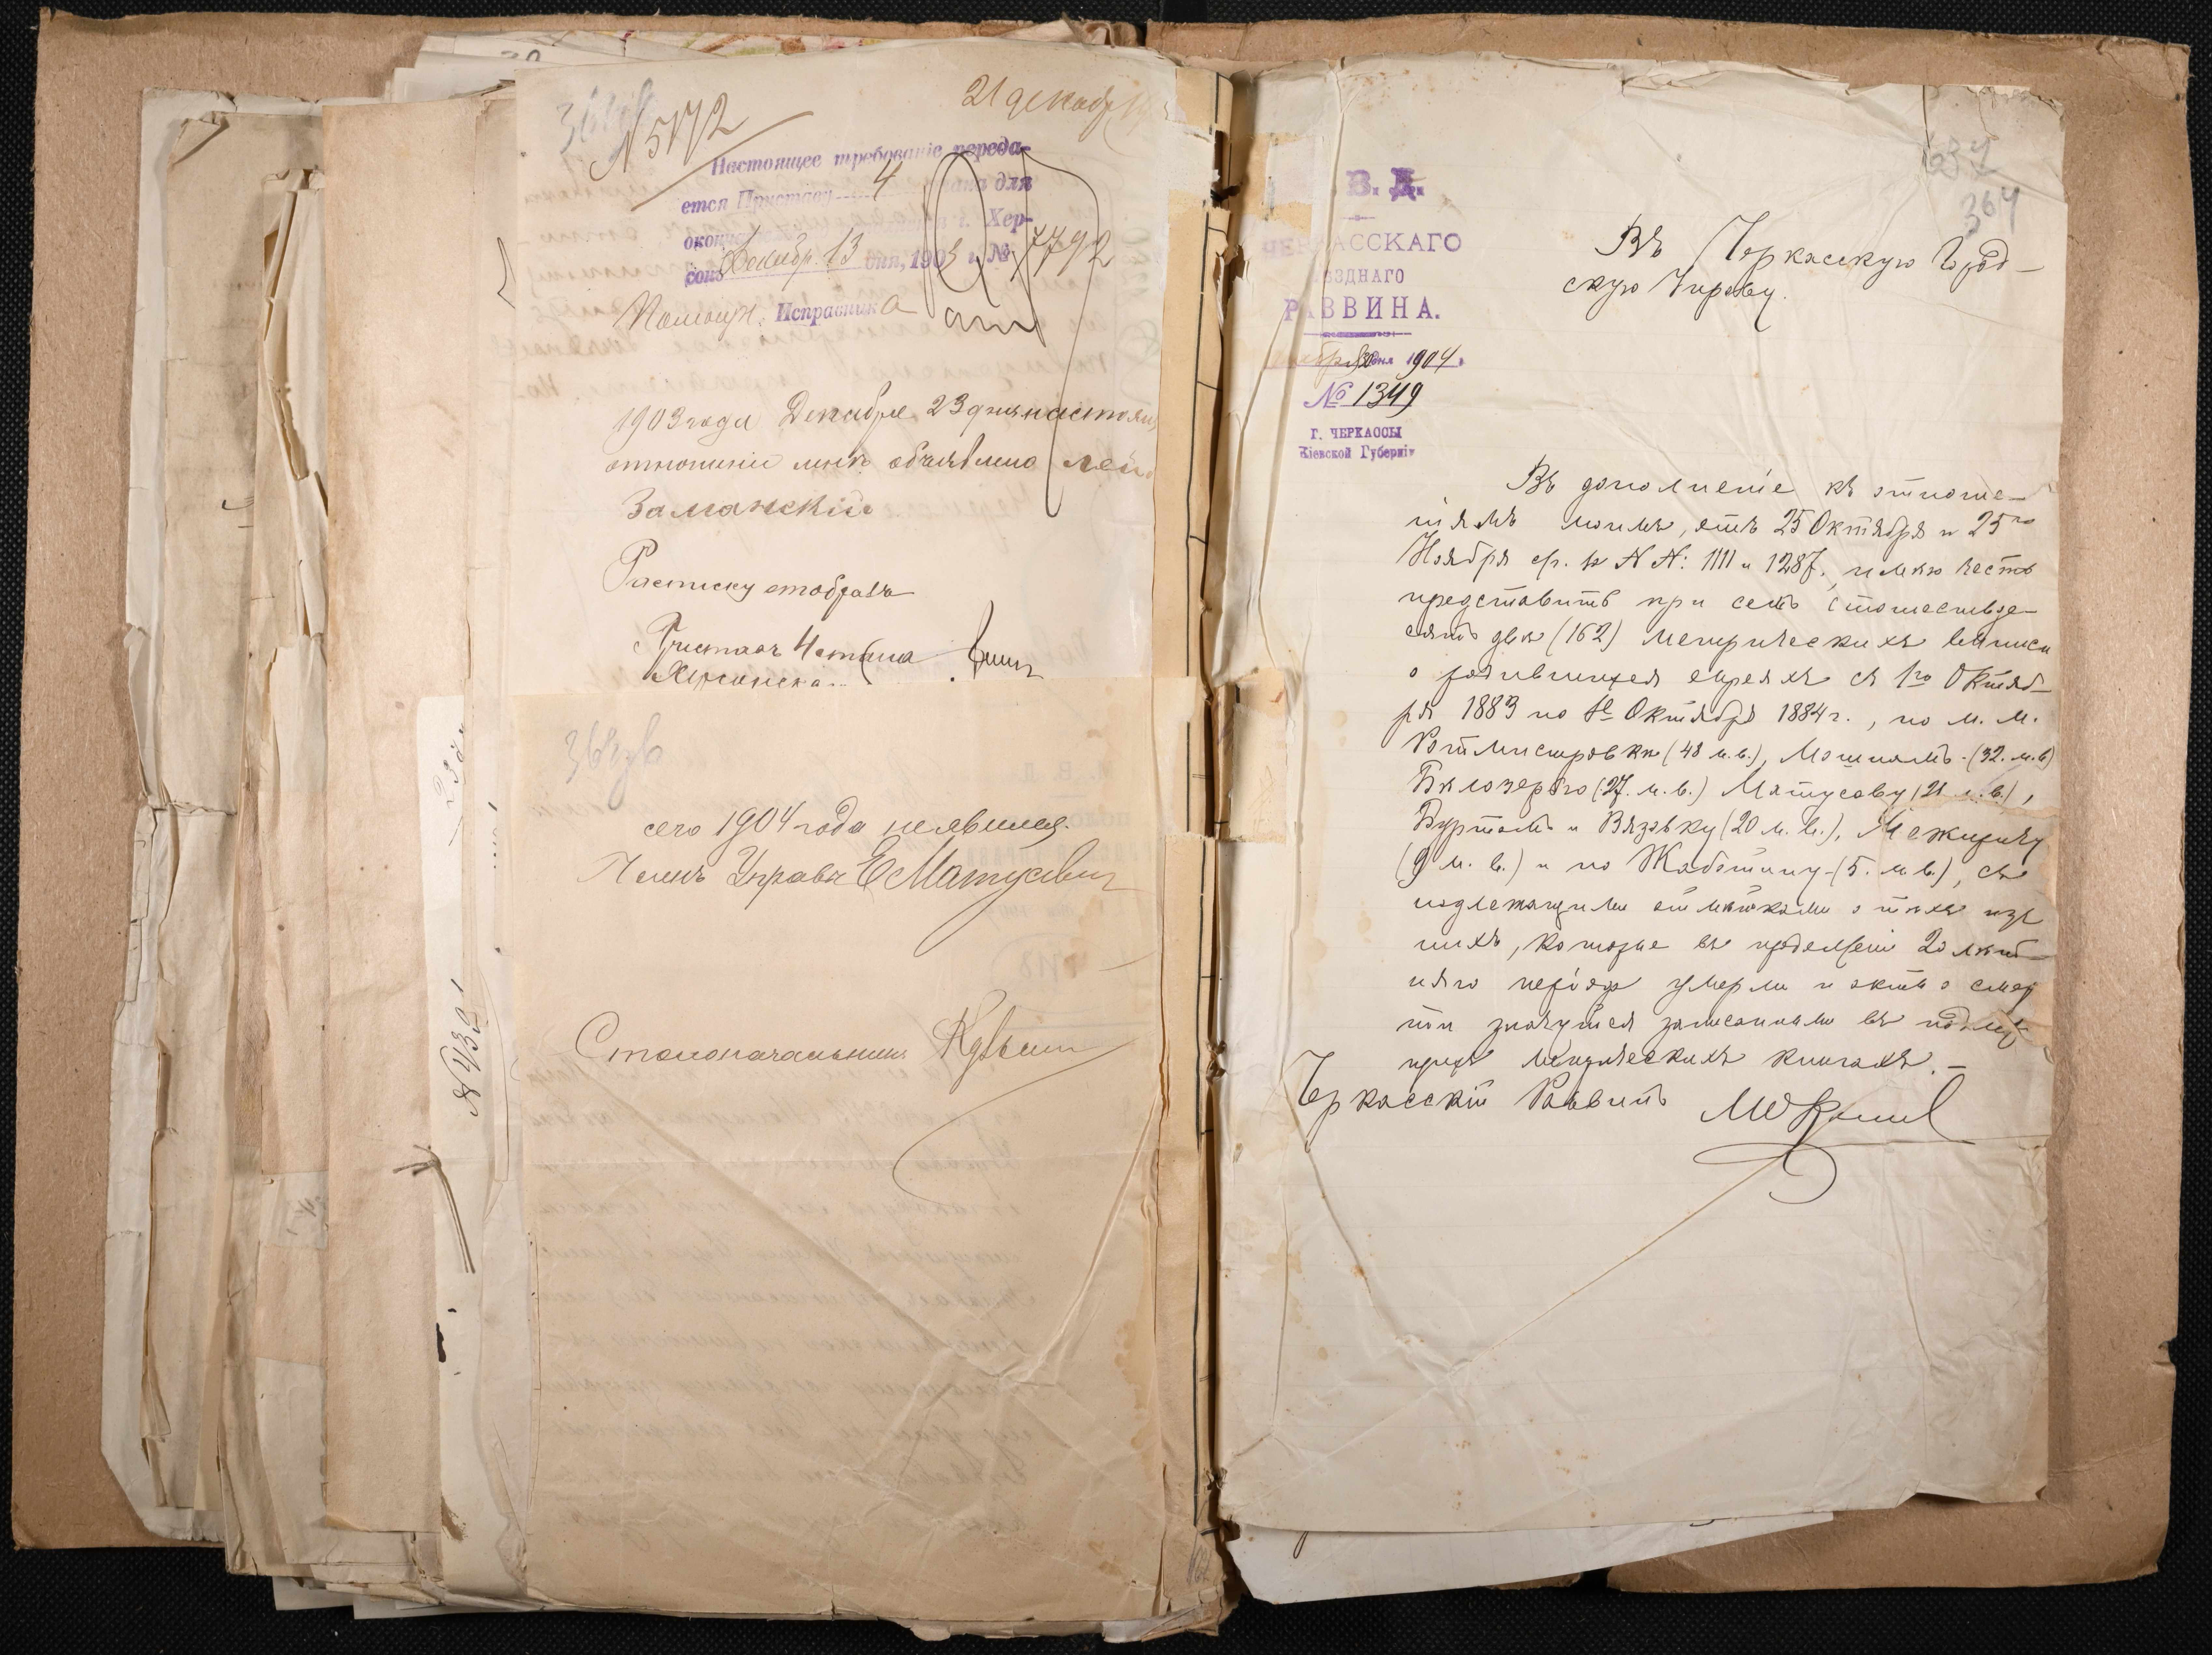 21 декабр
№ 5172
Настоящее требованіе переда-
ется Приставу 4 для
г. Хер-
сонъ Декабр. 13 дня, 1903 г. № 7792
Помощн. Исправника
1903 года Декабря 23 дня настоящ
отношеніе мнѣ объявлено
Заманскій
Расписку отобралъ
Приставъ 4
Херсона
сего 1904 года неявился.
Членъ Управы Е Матусевич
Столоначальникъ
№ 439
М. В. Д.
ЧЕРКАССКАГО
УѢЗДНАГО
РАВВИНА.
дня 1904 г.
№ 1349
Г. ЧЕРКАССЫ
Кіевской Губерніи
637
364
Въ Черкасскую Город-
скую Управу.
Въ дополненіе къ отноше-
ніямъ моимъ, отъ 25 Октября и 25го
Ноября с/г. за №№: 1111 и 1287, имѣю честь
представить при семъ стошестьде-
сятъ двѣ (162) метрическихъ выписи
о родившихся евреяхъ съ 1го Октяб-
ря 1883 по 1е Октября 1884 г., по м. м.
Ротмистровкѣ (48 м.в.), Мошнамъ (32. м.в)
Бѣлозерью (27. м. в.) Матусову (21 м.в.),
Буртамъ и Вязовку (20 м. в.), Межиричу
(9 м. в.) и по Жаботину (5. м.в.), съ
надлежащими отмѣтками о тѣхъ изъ
нихъ, которые въ продолженіи 20 лѣт-
няго періода умерли и актъ о смер
ти значутся записанными въ подлеж
щихъ метрическихъ книгахъ. —
Черкасскій Раввинъ